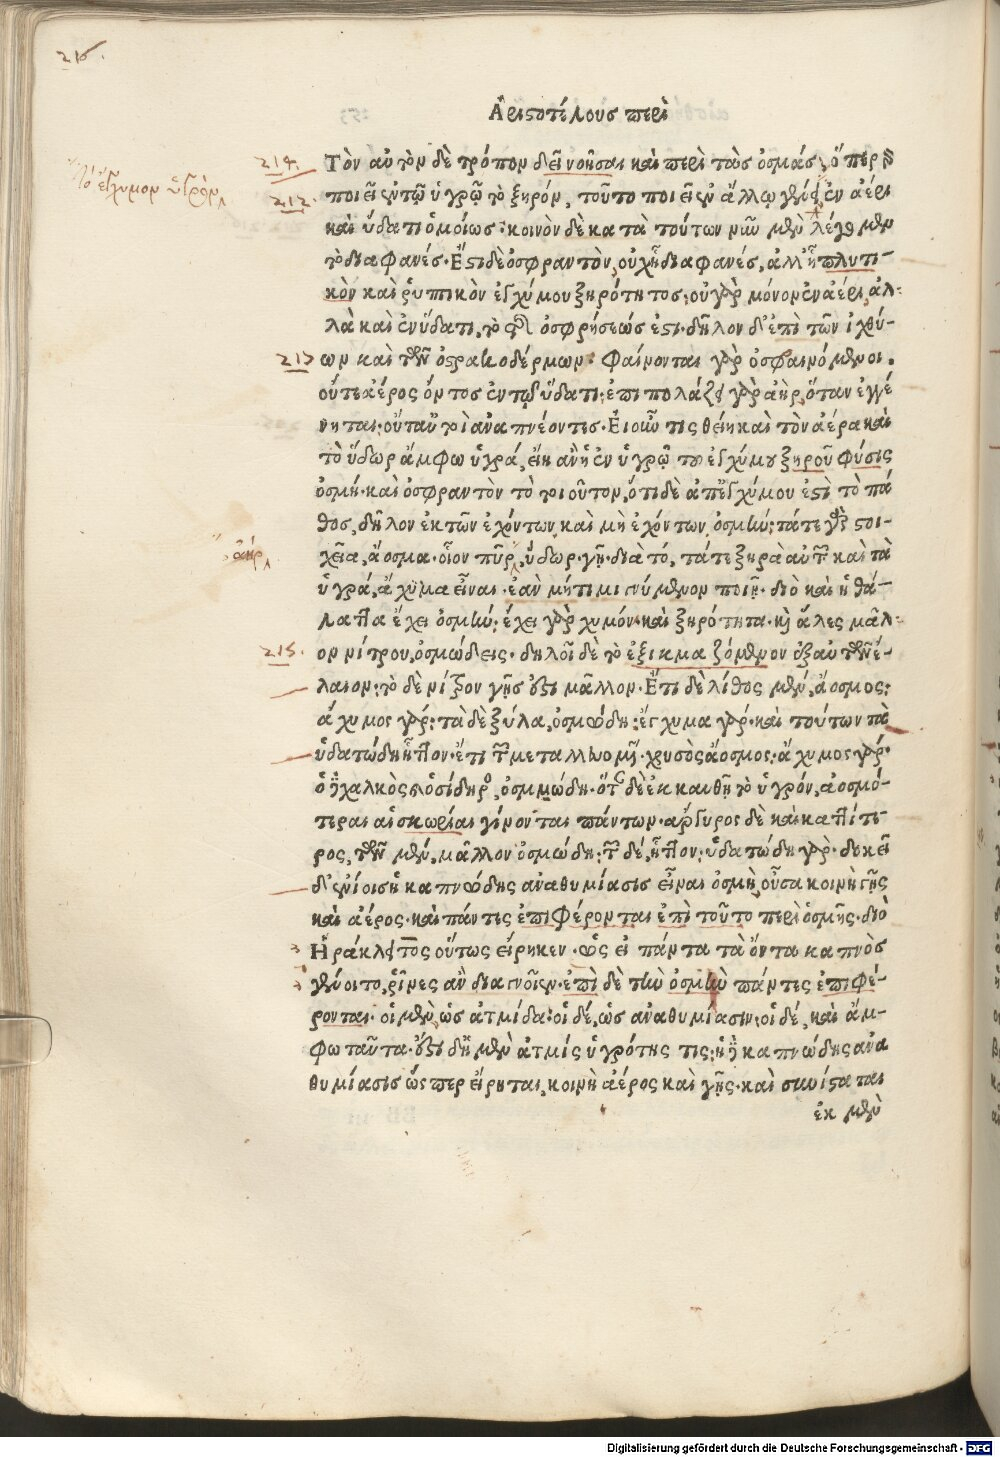 216.
Ἀριστοτέλους περὶ
214. Τὸν αὐτὸν δὲ τρόπον δεῖ νοῆσαι καὶ περὶ τὰς ὀσμάς· ὅπερ γὰρ
τὸ ἔγχυμον ὑγρὸν
212. ποιεῖ ἐν τῷ ὑγρῷ τὸ ξηρόν, τοῦτο ποιεῖ ἐν ἄλλῳ γένει ἐν ἀέρι
καὶ ὕδατι ὁμοίως· κοινὸν δὲ κατὰ τούτων νῦν μὲν λέγομεν
τὸ διαφανές· Ἔστι δὲ ὀσφραντὸν, οὐχ ᾗ διαφανές, ἀλλ' ᾗ πλυτι-
κὸν καὶ ῥυπτικὸν ἐγχύμου ξηρότητος· οὐ γὰρ μόνον ἐν ἀέρι, ἀλ-
λὰ καὶ ἐν ὕδατι, τὸ τῆς ὀσφρήσεώς ἐστι· δῆλον δ' ἐπὶ τῶν ἰχθύ-
217 ων καὶ τῶν ὀστρακοδέρμων· Φαίνονται γὰρ ὀσφραινόμενοι.
οὔτε ἀέρος ὄντος ἐν τῷ ὕδατι· ἐπιπολάζει γὰρ ἀὴρ, ὅταν ἐγγέ
νηται· οὔτ' αὐτοὶ ἀναπνέοντες· Εἰ οὖν τις θείη καὶ τὸν ἀέρα καὶ
τὸ ὕδωρ ἄμφω ὑγρά, εἴη ἂν ἡ ἐν ὑγρῷ τοῦ ἐγχύμου ξηροῦ φύσις
ὀσμή· καὶ ὀσφραντὸν τὸ τοιοῦτον, ὅτι δὲ ἀπ' ἐγχύμου ἐστὶ τὸ πά
θος, δῆλον ἐκ τῶν ἐχόντων, καὶ μὴ ἐχόντων ὀσμήν· τά τε γὰρ στοι-
ἀήρ
χεῖα, ἄοσμα· οἷον πῦρ, ὕδωρ· γῆ· διὰ τό, τά τε ξηρὰ αὐτῶν καὶ τὰ
ὑγρά, ἄχυμα εἶναι· ἐὰν μή τι μιγνύμενον ποιῇ· διὸ καὶ ἡ θά-
λαττα ἔχει ὀσμήν· ἔχει γὰρ χυμόν· καὶ ξηρότητα· καὶ ἅλες μᾶλ-
215. ον νίτρου, ὀσμώδεις· δηλοῖ δὲ τὸ ἐξικμαζόμενον ἐξ αὐτῶν ἔ-
λαιον· τὸ δὲ νίτρον γῆς ἐστι μᾶλλον· Ἔτι δὲ λίθος μέν, ἄοσμος·
ἄχυμος γάρ· τὰ δὲ ξύλα, ὀσμώδη· ἔγχυμα γάρ· καὶ τούτων τὰ
ὑδατώδη ἧττον· ἔτι τῶν μεταλλευομένων· χρυσὸς ἄοσμος· ἄχυμος γάρ·
ὁ δὲ χαλκὸς καὶ ὁ σίδηρος, ὀσμώδη· ὅταν δὲ ἐκκαυθῇ τὸ ὑγρόν, ἀοσμό-
τεραι αἱ σκωρίαι γίνονται πάντων· ἄργυρος δὲ καὶ καττίτε-
ρος, τῶν μέν, μᾶλλον ὀσμώδη· τῶν δέ, ἧττον· ὑδατώδη γάρ· δοκεῖ
δ' ἐνίοις ἡ καπνώδης ἀναθυμίασις εἶναι ὀσμή, οὖσα κοινὴ γῆς
καὶ ἀέρος· καὶ πάντες ἐπιφέρονται ἐπὶ τοῦτο περὶ ὀσμῆς· διὸ
Ἡράκλειτος οὕτως εἴρηκεν· ὡς εἰ πάντα τὰ ὄντα καπνὸς
γένοιτο, ῥῖνες ἂν διαγνοῖεν· ἐπὶ δὲ τὴν ὀσμὴν πάντες ἐπιφέ-
ρονται· οἱ μὲν, ὡς ἀτμίδα· οἱ δέ, ὡς ἀναθυμίασιν· οἱ δέ, καὶ ἄμ-
φω ταῦτα· ἔστι δὴ μὲν ἀτμὶς ὑγρότης τις· ἡ δὲ καπνώδης ἀνα
θυμίασις ὥσπερ εἴρηται, κοινὴ ἀέρος καὶ γῆς· καὶ συνίσταται
ἐκ μὲν
Digitalisierung gefördert durch die Deutsche Forschungsgemeinschaft - DFG